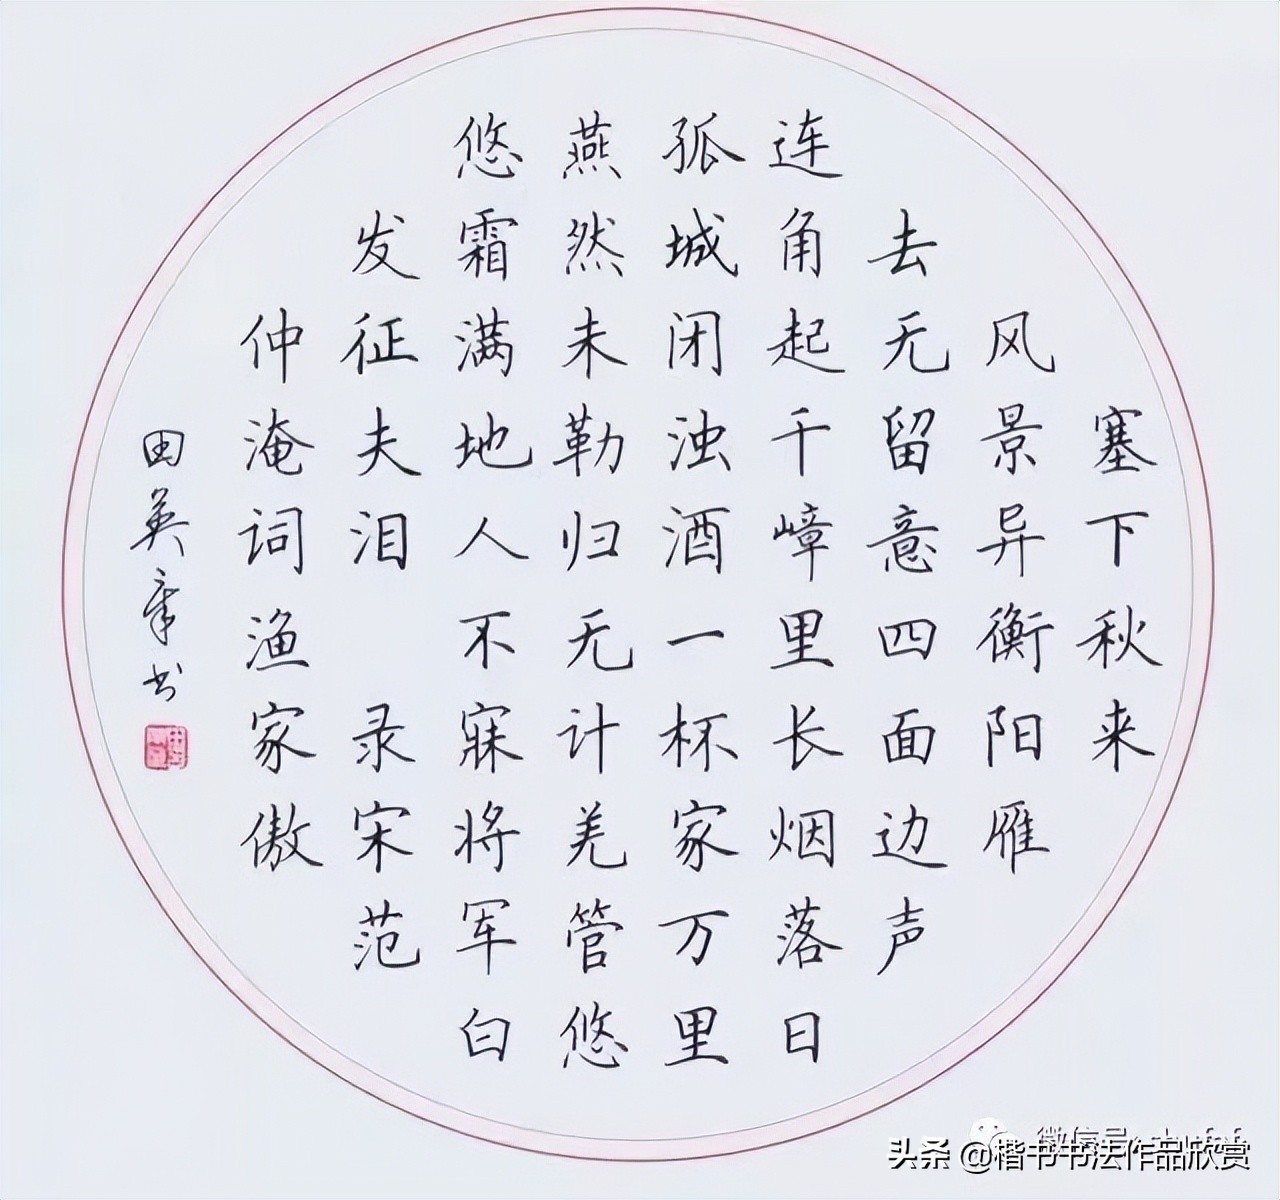 塞下秋来
风景异衡阳雁
去无留意四面边声
连角起千嶂里长烟落日
孤城闭浊酒一杯家万里
燕然未勒归无计羌管悠
悠霜满地人不寐将军白
发征夫泪 录宋范
仲淹词渔家傲
田英章书
头条 @楷书书法作品欣赏